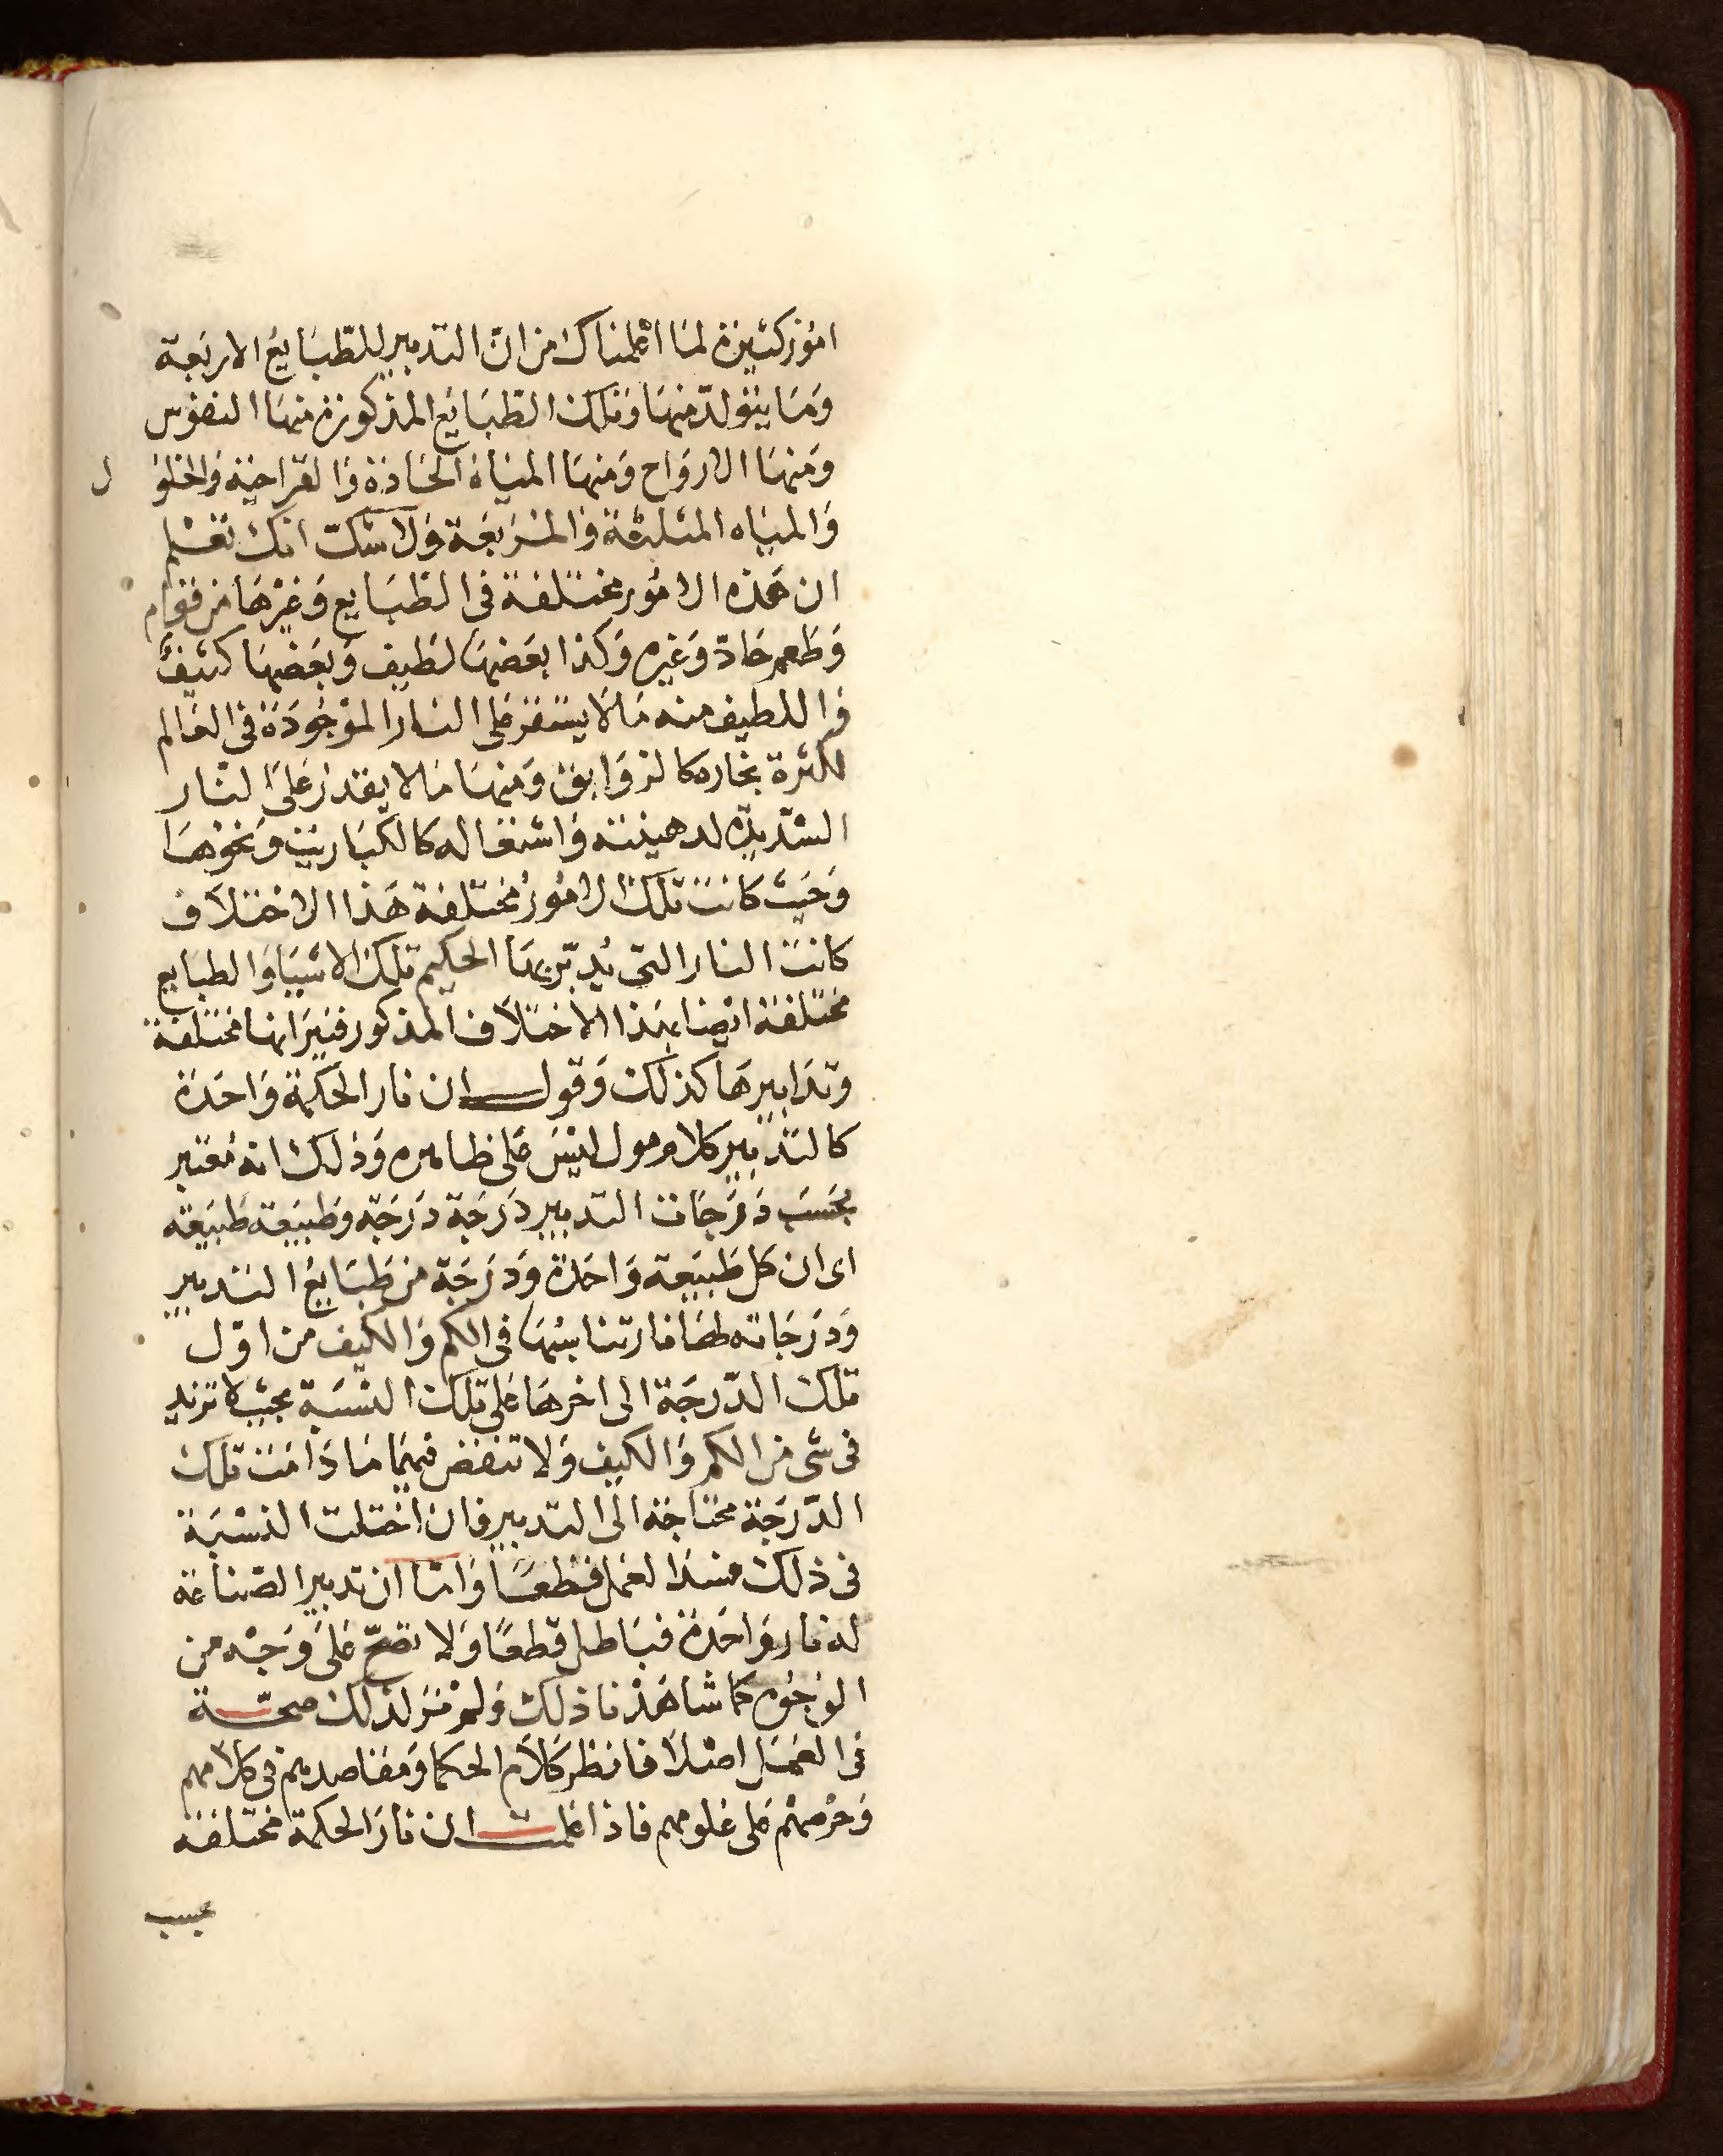 امور كثيرة لما اعلمناك من ان التدبير للطبايع الاربعة
وما يتولد منها وتلك الطبايع المذكورة منها النفوس
ومنها الارواح ومنها المياه الحادة والقراحية والخلو ل
والمياه المثلثة والمربعة ولا شك انك تعلم
ان هذه الامور مختلفة في الطبايع وغيرها من قوام
وطعم حاد وغيره وكذا بعضها لطيف وبعضها كثيف
واللطيف منه ما لا يستقر على النار الموجودة في العالم
لكثرة بخاره كالزوابق ومنها ما لا يقدر على النار
الشديدة لدهينته واشتعاله كالكباريت ونحوها
وحيث كانت تلك الامور مختلفة هذا الاختلاف
كانت النار التي يدبر بها الحكيم تلك الاشيا والطبايع
مختلفة ايضا بهذا الاختلاف المذكور فنيرانها مختلفة
وتدابيرها كذلك وقول ان نار الحكمة واحدة
كالتدبير كلام مول ليس على ظاهره وذلك انه معتبر
بحسب درجات التدبير درجة درجة وطبيعة طبيعة
اى ان كل طبيعة واحدة ودرجة من طبايع التدبير
ودرجاته لها نار تناسبها في الكم والكيف من اول
تلك الدرجة الى اخرها على تلك النسبة بحيث لا تزيد
في شى من الكم والكيف ولا تنقص فيهما ما دامت تلك
الدرجة محتاجة الى التدبير فان اختلت النسبة
في ذلك فسد العمل قطعا واما ان تدبير الصناعة
له نار واحدة فباطل قطعا ولا تصح على وجه من
الوجوه كما شاهدنا ذلك ولم نر لذلك صحة
في العمل اصلا فانظر كلام الحكما ومقاصدهم في كلامهم
وحرصهم على علومهم فاذا علمت ان نار الحكمة مختلفة
بحسب